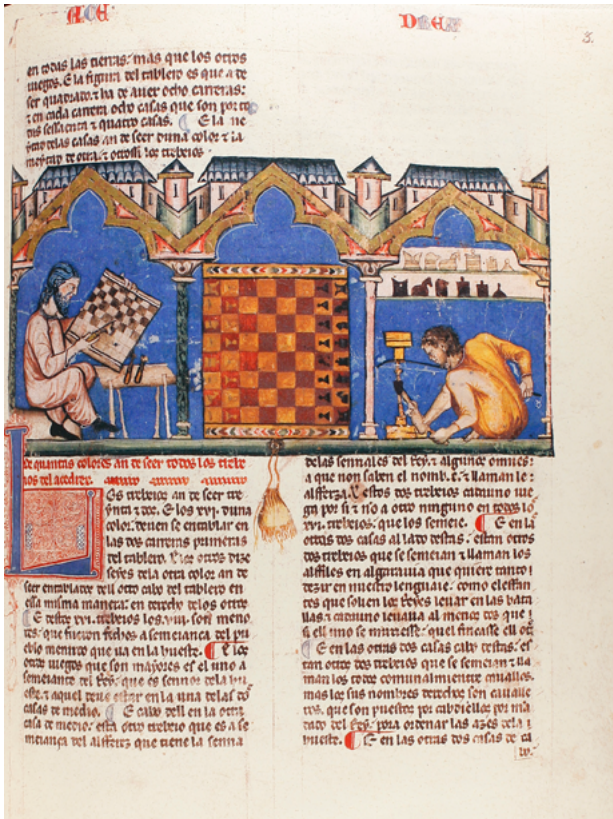 ACE DREX
3.
en todas las tierras; mas que los otros
iuegos. E la figura del tablero es que a de
ser quadrado. ⁊ ha de auer ocho carreras:
⁊ en cada carrera ocho casas que son por to
das sessaenta ⁊ quatro casas. E la me
ytad de las casas an de seer duna color. ⁊ la
meytad de otra. ⁊ otrossi los trebeios.
de quantas colores an de seer todos los trebe
ios del acedrex.
Os trebeios an de seer tre
ynta ⁊ dos. E los xvi. duna
color. deuen se entablar en
las dos carreras primeras
del tablero. E los otros dize
seyes de la otra color an de
seer entablados dell otro cabo del tablero en
essa misma manera; en derecho de los otros
E destos xvi. trebeios los .viii. son meno
res; que fueron fechos a semeiança del pu
eblo menudo que ua en la hueste. E los
otros iuegos que son mayores es el uno a
semeiante del Rey; que es sennor de la hu
este. ⁊ aquel deue estar en la una de las dos
casas de medio. E cabo dell en la otra
casa de medio; esta otro trebeio que es a se
meiança del alfferez que tiene la senna
de las sennales del Rey. ⁊ algunos omnes;
a que non saben el nombre. ⁊ llaman le
alfferza. E estos dos trebeios cadauno iue
ga por si ⁊ no a otro ninguno en todos los
xvi. trebeios; que los semeie. E en la
otras dos casas al lado destas; estan otros
dos trebeios que se semeian ⁊ llaman los
alffiles en algarauia que quiere tanto
dezir en nuestro lenguaie; como eleffan
tes que solien los Reyes leuar en las bata
llas. ⁊ cadauno leuaua al menos dos que
si ell uno se muriesse; quel fincasse ell otro
E en las otras dos casas cabo destas; es
tan otros dos trebeios que se semeian ⁊ lla
man los todos comunalmientre cauallos.
mas los sus nombres derechos son caualle
ros. que son puestos por cabdiellos por man
dado del Rey; pora ordenar las azes de la
hueste. E en las otras dos casas de ca
bo.